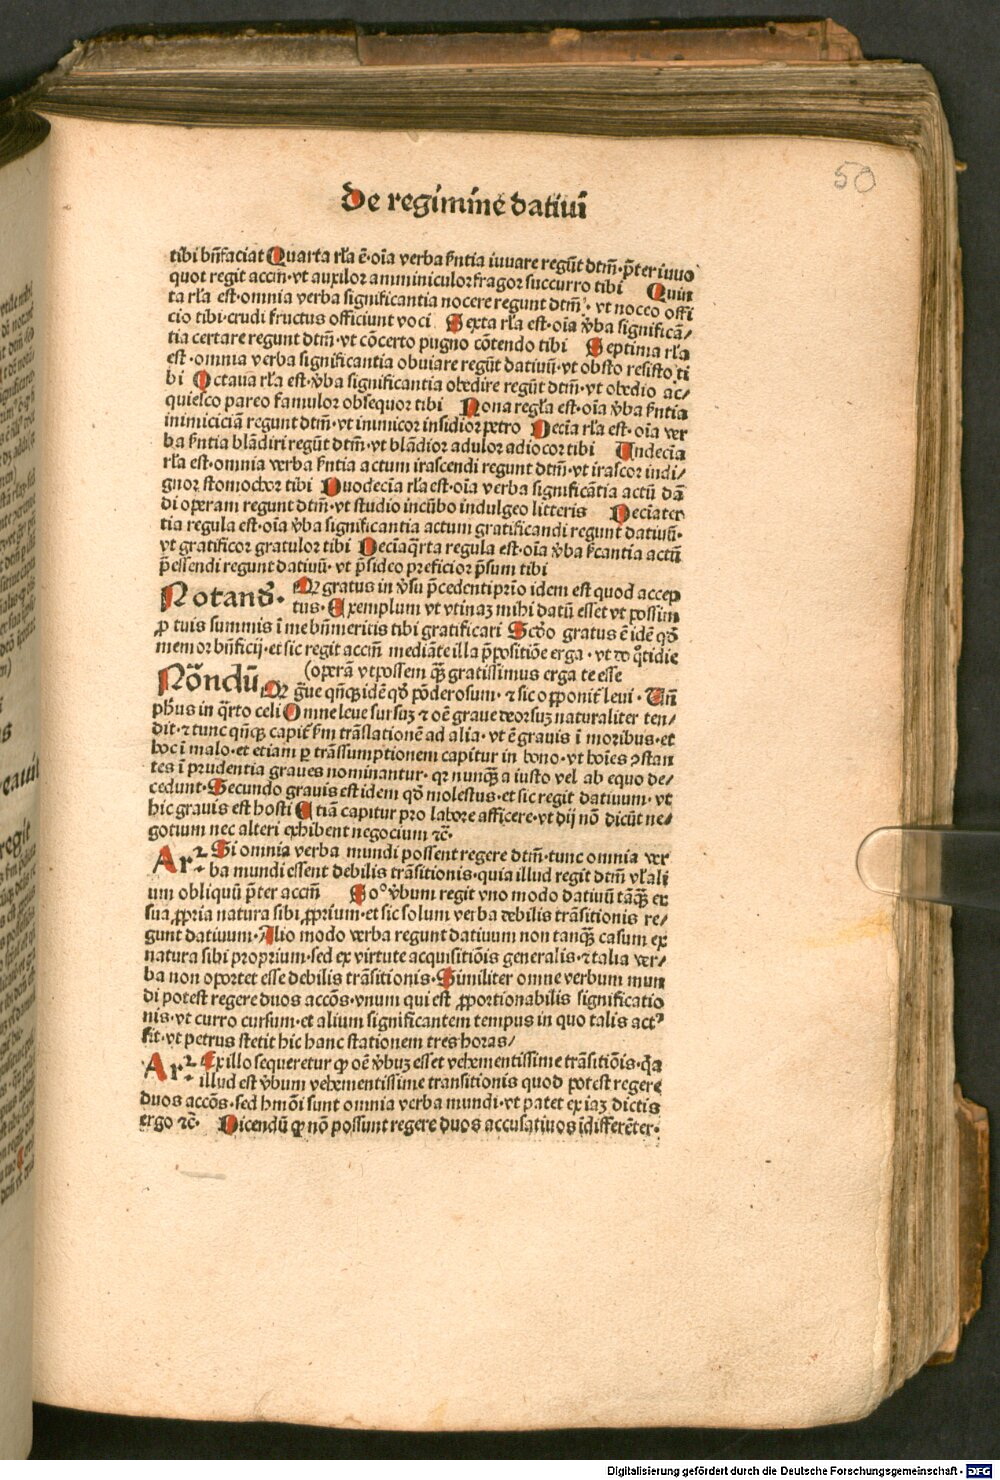 50
De regimine datiui
tibi bn̄faciat Quarta rl'a ē·oīa verba sn̄tia iuuare regūt dtm̄·p̄ter iuuo
quot regit accm̄·vt auxilor amminiculor fragor succurro tibi Quin
ta rl'a est·omnia verba significantia nocere regunt dtm̄·vt noceo offi
cio tibi·crudi fructus officiunt voci Sexta rl'a est·oīa v̄ba significā/
tia certare regunt dtm̄·vt cōcerto pugno cōtendo tibi Septima rl'a
est·omnia verba significantia obuiare regūt datiuū·vt obsto resisto ti
bi Octaua rl'a est·v̄ba significantia obedire regūt dtm̄·vt obedio ac/
quiesco pareo famulor obsequor tibi Nona regl'a est·oīa v̄ba sn̄tia
inimiciciā regunt dtm̄·vt inimicor insidior petro Decīa rl'a est·oīa ver
ba sn̄tia blādiri regūt dtm̄·vt blādior adulor adiocor tibi Undecīa
rl'a est·omnia verba sn̄tia actum irascendi regunt dtm̄·vt irascor indi/
gnor stomochor tibi Duodecīa rl'a est·oīa verba significātia actū dā
di operam regunt dtm̄·vt studio incūbo indulgeo litteris Decīater
tia regula est·oīa v̄ba significantia actum gratificandi regunt datiuū·
vt gratificor gratulor tibi Decīaq̄rta regula est·oīa v̄ba sīcantia actū
p̄essendi regunt datiuū·vt p̄sideo preficior p̄sum tibi
Notand̄· Qr gratus in v̄su p̄cedenti prīo idem est quod accep
tus·Exemplum vt vtinaz mihi datū esset vt possim
ꝓ tuis summis ī me bn̄meritis tibi gratificari Scd̄o gratus ē idē qd̄
memor bn̄ficij·et sic regit accm̄ mediāte illa p̄positiōe erga·vt do q̄tidie
(operā vt possem qꝫ gratissimus erga te esse
Nōndū Qr g̈ue qn̄qꝫ idē qd̄ pōderosum·⁊ sic opponit̄ leui·Un̄
ph̄us in q̄rto celi Omne leue sursuz ⁊ oē graue deorsuz naturaliter ten/
dit·⁊ tunc qn̄qꝫ capit̄ sm̄ trāslationē ad alia·vt ē grauis ī moribus·et
hoc ī malo·et etiam ꝑ trāssumptionem capitur in bono·vt hoīes ꝯstan
tes ī prudentia graues nominantur·qr nunqꝫ a iusto vel ab equo de/
cedunt·Secundo grauis est idem qd̄ molestus·et sic regit datiuum·vt
hic grauis est hosti Etiā capitur pro labore afficere·vt dij nō dicūt ne/
gotum nec alteri exhibent negocium ⁊c̄·
Ar²· Si omnia verba mundi possent regere dtm̄·tunc omnia ver
ba mundi essent debilis trāsitionis·quia illud regit dtm̄ vl'ali
um obliquū p̄ter accm̄ So° v̄bum regit vno modo datiuū tāqꝫ ex
sua ꝓpria natura sibi ꝓprium·et sic solum verba debilis trāsitionis re/
gunt datiuum·Alio modo verba regunt datiuum non tanqꝫ casum ex
natura sibi proprium·sed ex virtute acquisitiōis generalis·⁊ talia ver/
ba non oportet esse debilis trāsitionis·Similiter omne verbum mun
di potest regere duos accōs·vnum qui est ꝓportionabilis significatio
nis·vt curro cursum·et alium significantem tempus in quo talis actꝰ
fit·vt petrus stetit hic hanc stationem tres horas/
Ar²· Ex illo sequeretur ꝙ oē v̄buz esset vehementissime trāsitiōis·q̄a
illud est v̄bum vehementissime transitionis quod potest regere
duos accōs·sed hmōi sunt omnia verba mundi·vt patet ex iaz dictis
ergo ⁊c̄· Dicendū ꝙ nō possunt regere duos accusatiuos īdifferēter·
Digitalisierung gefördert durch die Deutsche Forschungsgemeinschaft - DFG